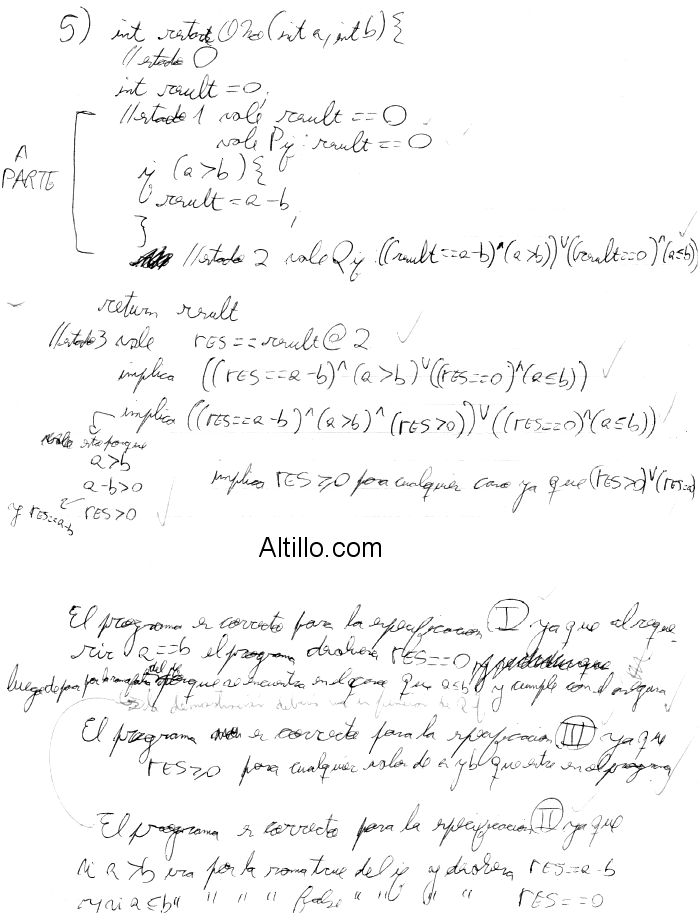 5) int restaOCero(int a, int b) {
//estado 0
int result = 0;
//estado 1 vale result == 0
vale Pif: result == 0
A PARTE
if (a>b) {
result = a-b;
}
//estado 2 vale Qif: ((result==a-b)^(a>b))v((result==0)^(a≤b))
return result
//estado 3 vale res == result@2
implica ((res==a-b)^(a>b)v((res==0)^(a≤b))
implica ((res==a-b)^(a>b)^(res>0))v((res==0)^(a≤b))
vale esto porque
a>b
a-b>0
y res=a-b res>0
implica res≥0 para cualquier caso ya que (res>0)v(res=0)
Altillo.com
El programa es correcto para la especificacion I ya que al reque
rir a==b el programa devolvera res==0
luego de pasar por la rama del if porque se encuentra en el caso que a≤b y cumple con el asegura
la demostracion debería ser en función de Qif
El programa es correcto para la especificacion III ya que
res≥0 para cualquier valor de a y b que entre en el programa
El programa es correcto para la especificacion II ya que
si a>b ira por la rama true del if y devolvera res=a-b
y si a≤b " " " " false " " " " res==0